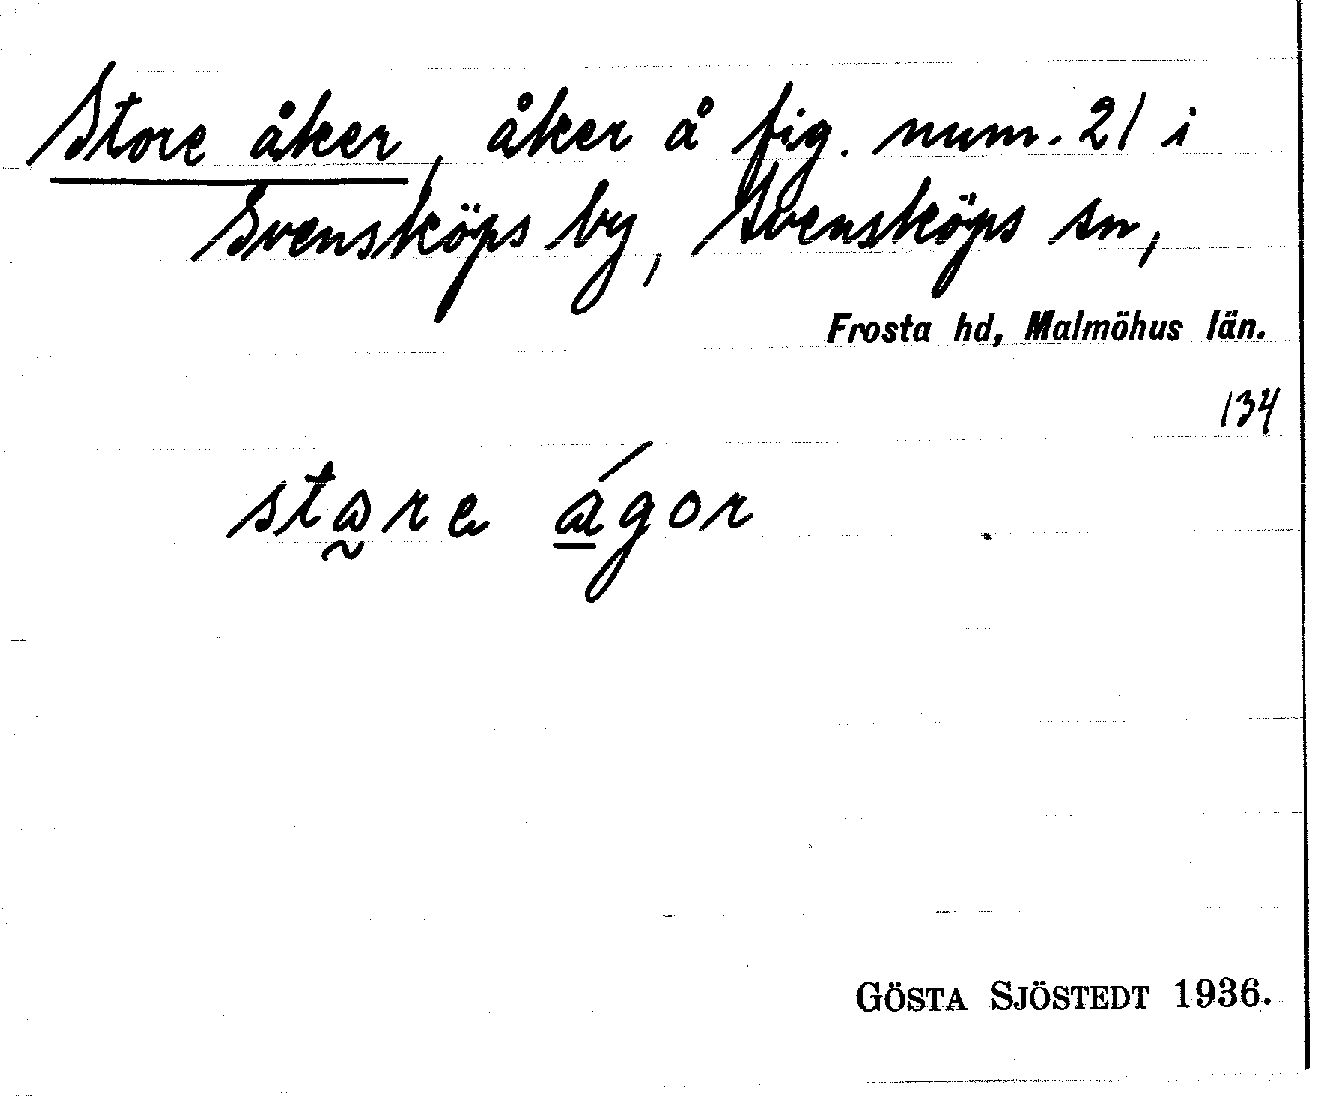 Store åker, åker å fig. num. 21 i
Svensköps by, Svensköps sn,
Frosta hd, Malmöhus län.
134
stɷ̰re ɷ̱́gor
GÖSTA SJÖSTEDT 1936.